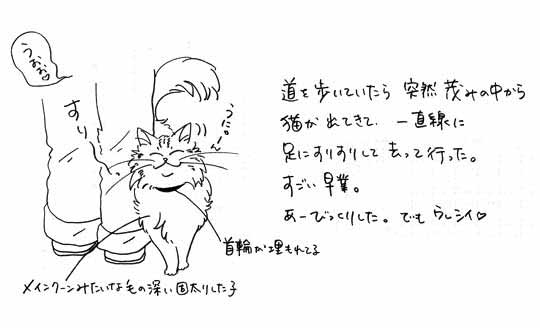 うおお
すり
うにゃ。
道を歩いていたら 突然 茂みの中から
猫が出てきて、一直線に
足にすりすりして 去って行った。
すごい早業。
あーびっくりした。でも ウレシイ♡
首輪が埋もれてる
メインクーンみたいな毛の深い固太りした子